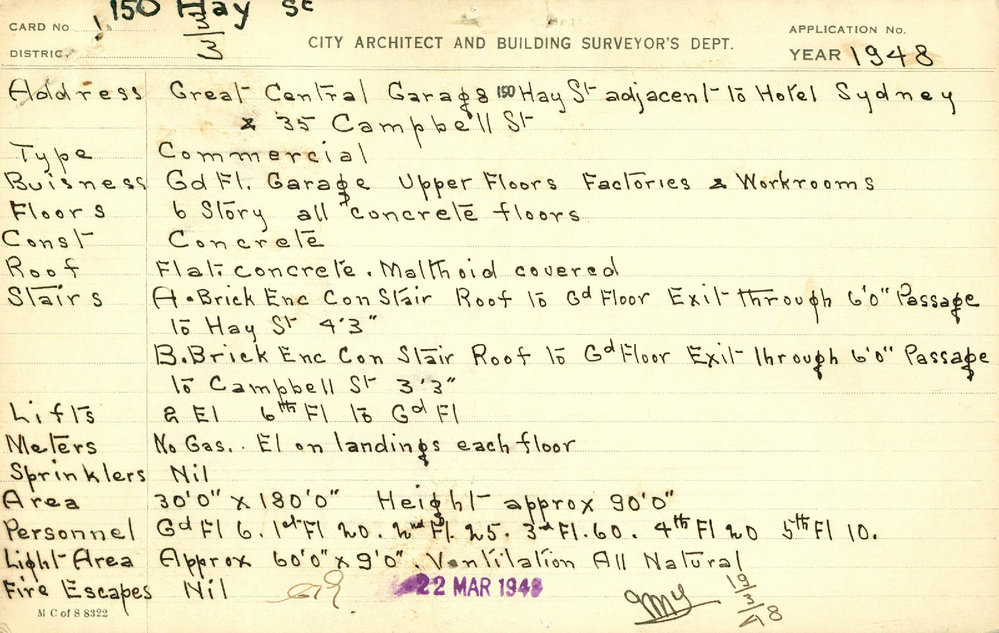 150 Hay St
CARD No
DISTRICT
CITY ARCHITECT AND BUILDING SURVEYOR'S DEPT.
APPLICATION No.
YEAR 1948
Address Great Central Garage 150 Hay St adjacent to Hotel Sydney
& 35 Campbell St
Type Commercial
Buisness Gd Fl. Garage Upper Floors Factories & Workrooms
Floors 6 Story all concrete floors
Const Concrete
Roof Flat. concrete. Malthoid covered
Stairs A. Brick Enc Con Stair Roof to Gd Floor Exit through 6'0" Passage
to Hay St 4'3"
B. Brick Enc Con Stair Roof to Gd Floor Exit through 6'0" Passage
to Campbell St 3'3"
Lifts 2 El 6th Fl to Gd Fl
Meters No Gas.. El on landings each floor
Sprinklers Nil
Area 30'0" x 180'0" Height approx 90'0"
Personnel Gd Fl 6. 1st Fl 20. 2nd Fl. 25. 3rd Fl. 60. 4th Fl 20 5th Fl 10.
Light Area Approx 60'0" x 9'0". Ventilation All Natural
Fire Escapes Nil
22 MAR 1948
19/3/48
M C of S 8322